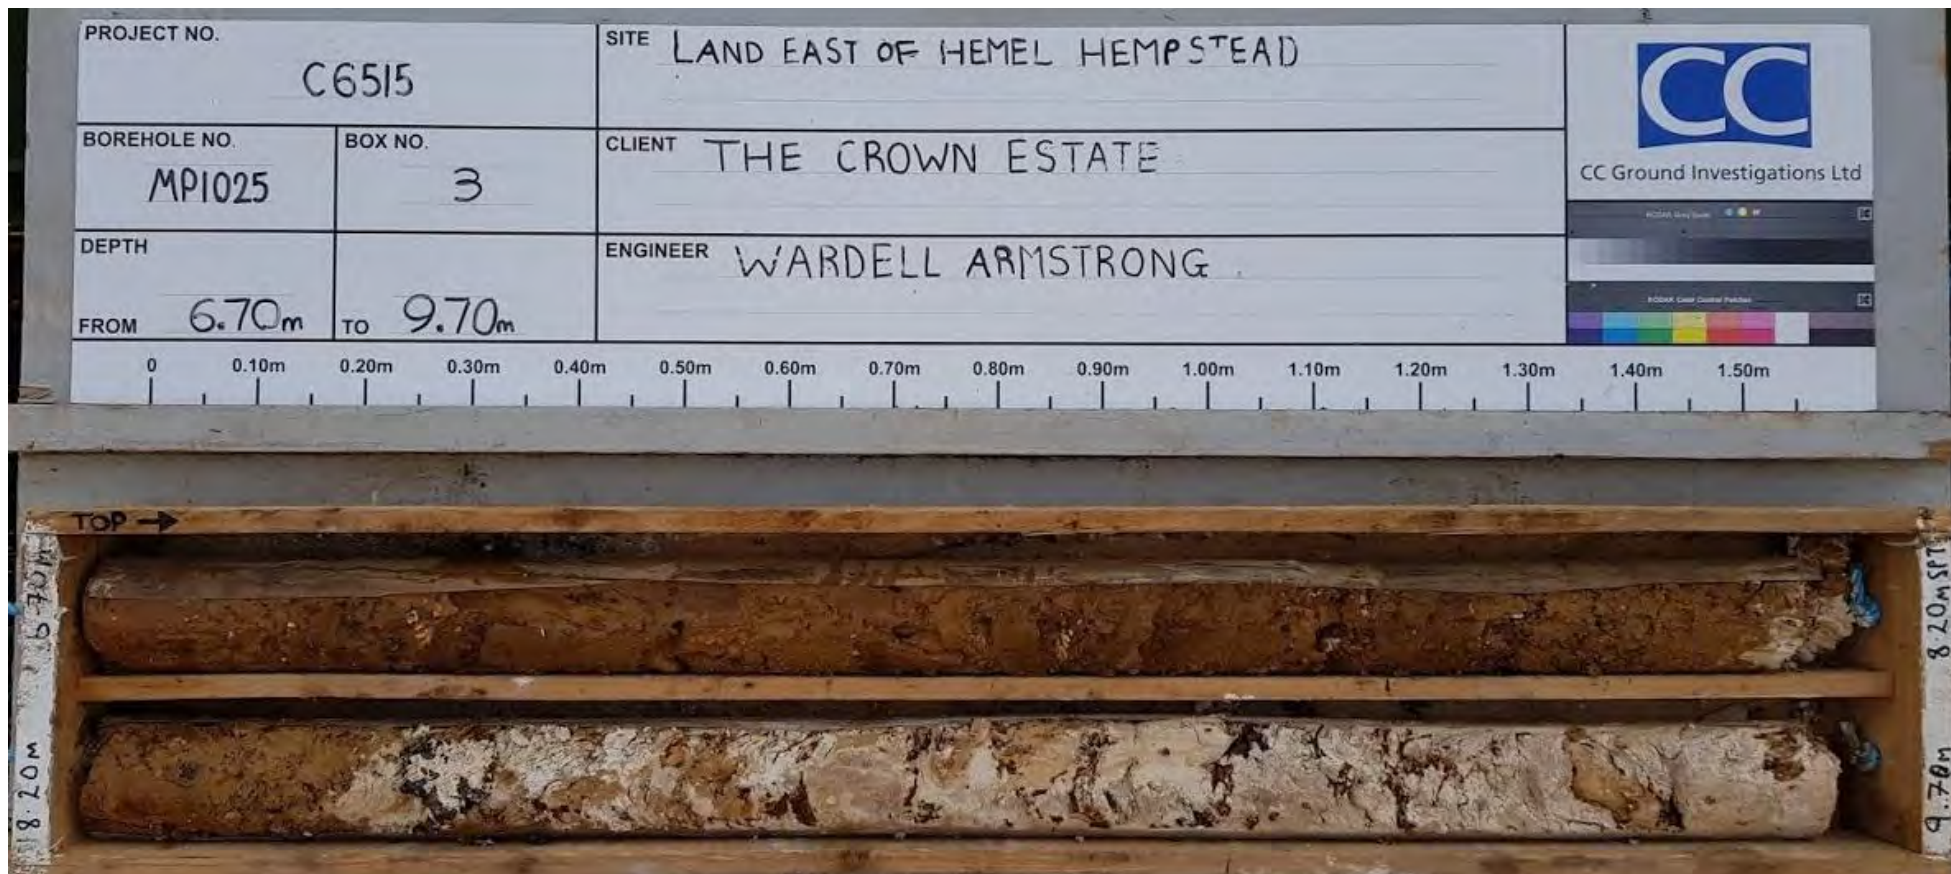 PROJECT NO.
C6515
SITE LAND EAST OF HEMEL HEMPSTEAD
BOREHOLE NO.
MP1025
BOX NO.
3
CLIENT THE CROWN ESTATE
DEPTH
FROM 6.70m TO 9.70m
ENGINEER WARDELL ARMSTRONG
CC
CC Ground Investigations Ltd
KODAK Gray Scale
KODAK Color Control Patches
0 0.10m 0.20m 0.30m 0.40m 0.50m 0.60m 0.70m 0.80m 0.90m 1.00m 1.10m 1.20m 1.30m 1.40m 1.50m
TOP →
6.70m
8.20m SPT
8.20m
9.70m